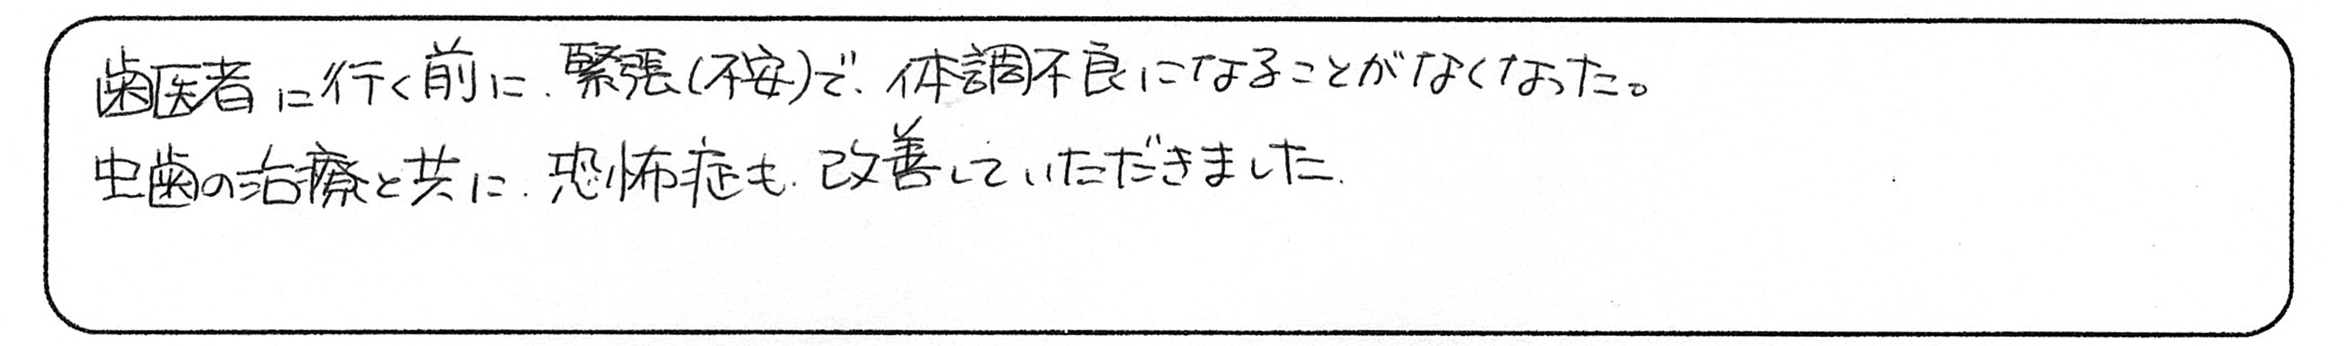 歯医者に行く前に、緊張(不安)で、体調不良になることがなくなった。
虫歯の治療と共に、恐怖症も、改善していただきました。